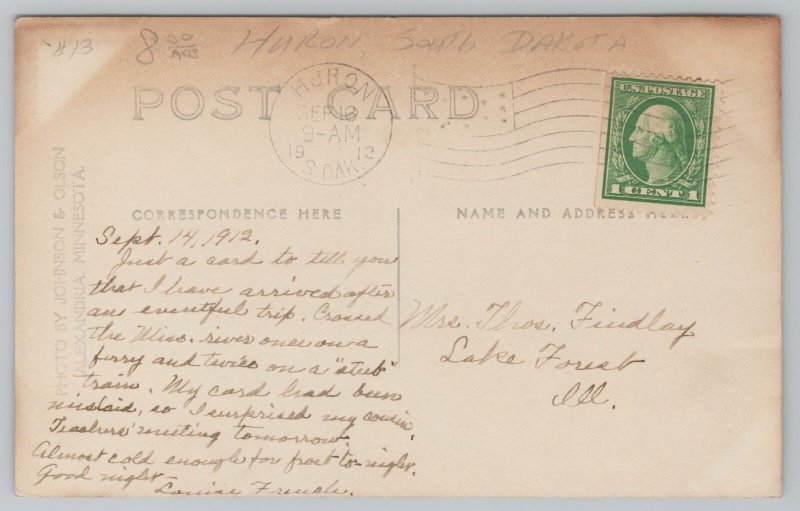 #13 8 HURON, SOUTH DAKOTA
POST CARD
HURON
SEP 16
9-AM
1912
S. DAK.
U.S. POSTAGE
1 CENT 1
PHOTO BY JOHNSON & OLSON
ALEXANDRIA, MINNESOTA.
CORRESPONDENCE HERE
NAME AND ADDRESS HERE
Sept. 14, 1912.
Just a card to tell you
that I have arrived after
an eventful trip. Crossed
the Miss. river once on a
ferry and twice on a "stub"
train. My card had been
mislaid, so I surprised my cousin.
Teachers' meeting tomorrow.
Almost cold enough for frost to-night.
Good night
Louise French.
Mrs. Thos. Findlay
Lake Forest
Ill.